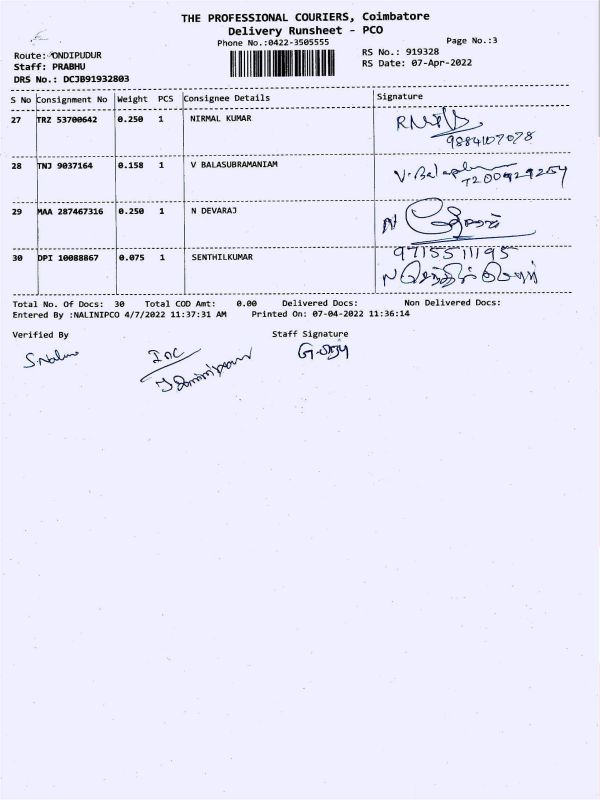 THE PROFESSIONAL COURIERS, Coimbatore
Delivery Runsheet - PCO
Phone No.:0422-3505555
Page No.:3
Route: ONDIPUDUR
RS No.: 919328
Staff: PRABHU
RS Date: 07-Apr-2022
DRS No.: DCJB91932803
S No Consignment No Weight PCS Consignee Details Signature
27 TRZ 53700642 0.250 1 NIRMAL KUMAR
9884107078
28 TNJ 9037164 0.158 1 V BALASUBRAMANIAM
29 MAA 287467316 0.250 1 N DEVARAJ
30 DPI 10088867 0.075 1 SENTHILKUMAR
9715511195
Total No. Of Docs: 30 Total COD Amt: 0.00 Delivered Docs: Non Delivered Docs:
Entered By :NALINIPCO 4/7/2022 11:37:31 AM Printed On: 07-04-2022 11:36:14
Verified By Staff Signature